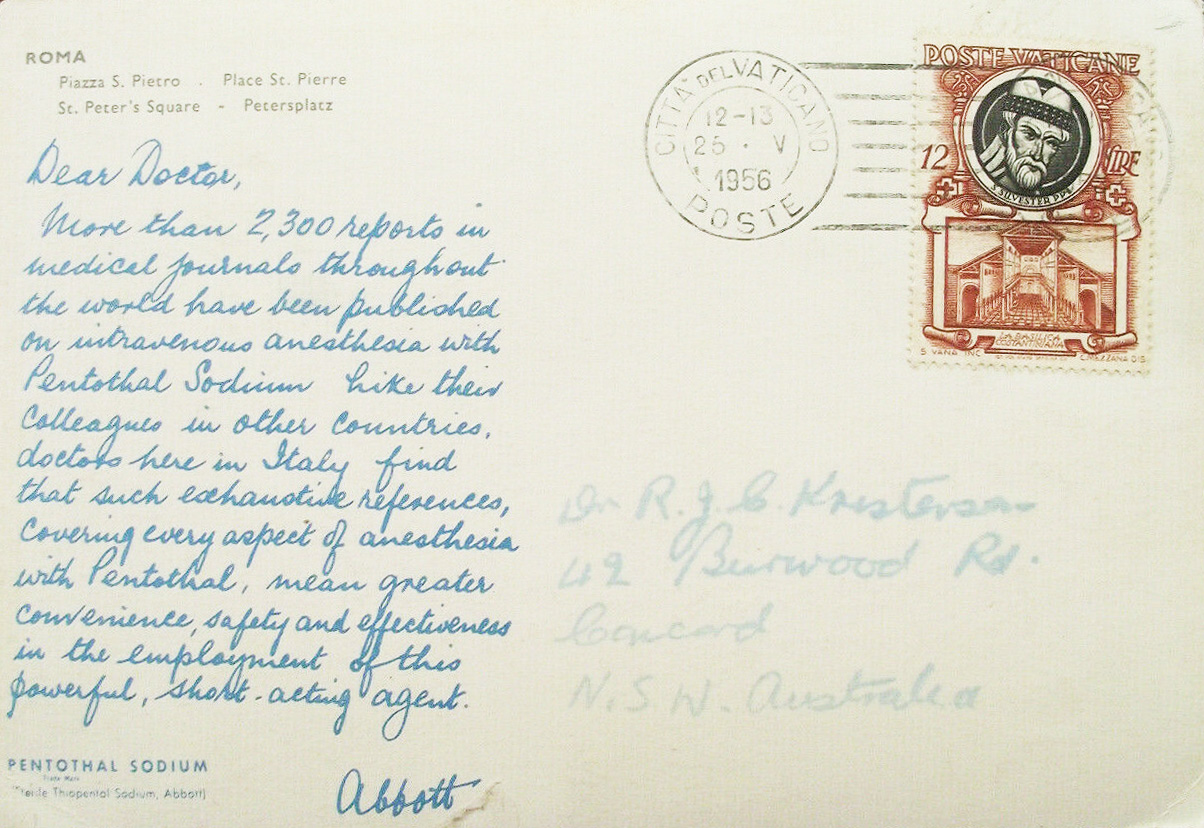 ROMA
Piazza S. Pietro . Place St. Pierre
St. Peter's Square - Petersplatz
Dear Doctor,
More than 2,300 reports in
medical journals throughout
the world have been published
on intravenous anesthesia with
Pentothal Sodium Like their
colleagues in other countries,
doctors here in Italy find
that such exhaustive references,
covering every aspect of anesthesia
with Pentothal, mean greater
convenience, safety and effectiveness
in the employment of this
powerful, short-acting agent.
Abbott
PENTOTHAL SODIUM
Trade Mark
Thiopental Sodium, Abbott)
CITTÀ DEL VATICANO
12-13
25 · V
1956
POSTE
POSTE VATICANE
12 LIRE
S SILVESTER PP
LA BASILICA
COSTANTINIANA
S. VANA INC
C. MEZZANA DIS.
Dr R. J. C. Kristensen
42 Burwood Rd.
Concord
N.S.W. Australia